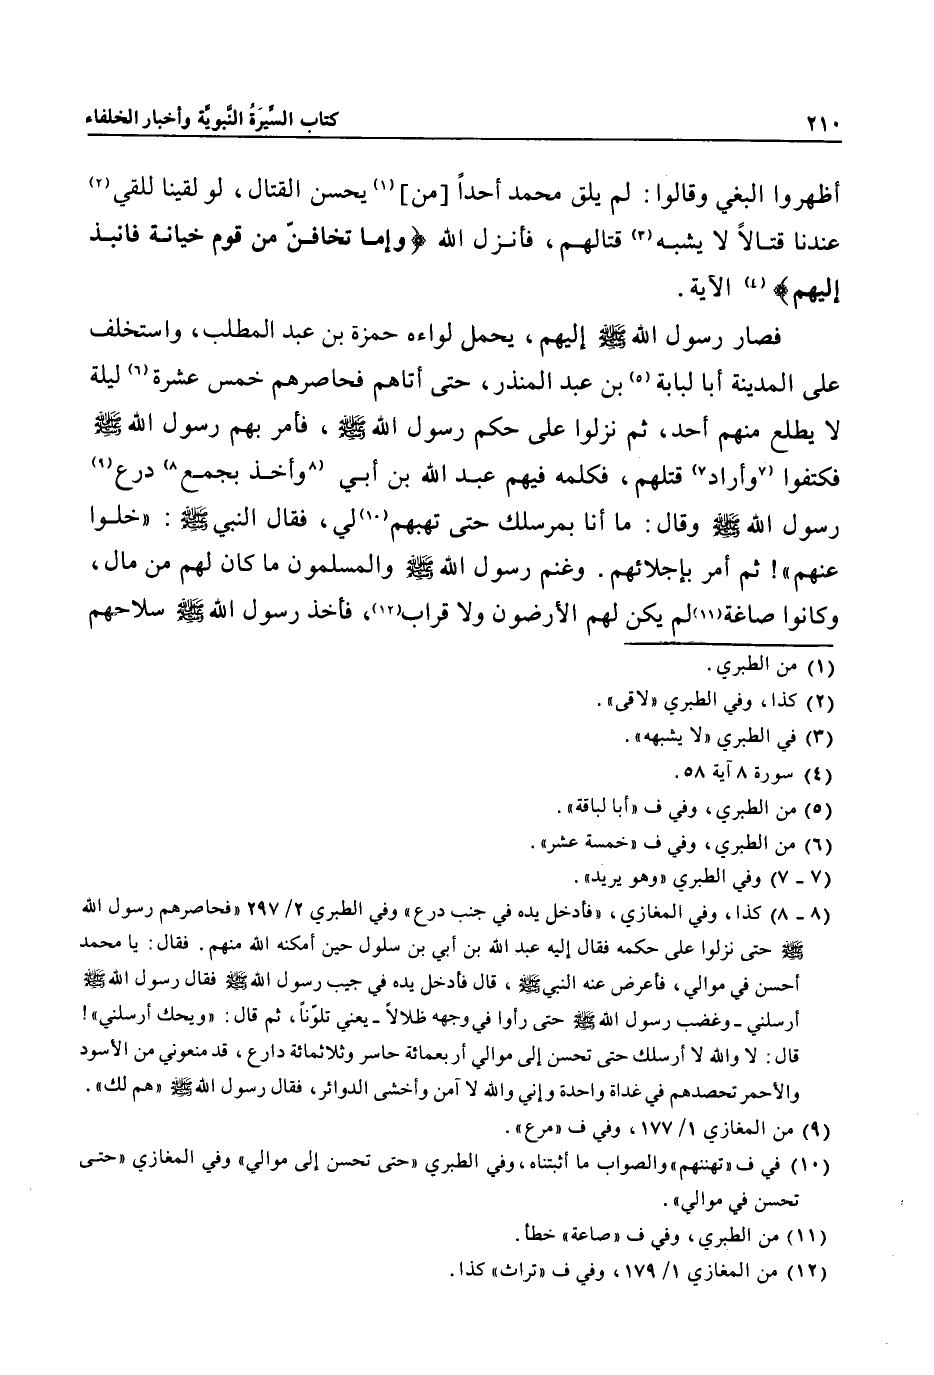 ٢١٠ كتاب السِّيرَةُ النَّبويَّة وأخبار الخلفاء
أظهروا البغي وقالوا: لم يلق محمد أحداً [من](١) يحسن القتال، لو لقينا للقي(٢)
عندنا قتالاً لا يشبه(٣) قتالهم، فأنزل الله ﴿وإما تخافنّ من قوم خيانة فانبذ
إليهم﴾(٤) الآية.
فصار رسول الله ﷺ إليهم، يحمل لواءه حمزة بن عبد المطلب، واستخلف
على المدينة أبا لبابة(٥) بن عبد المنذر، حتى أتاهم فحاصرهم خمس عشرة(٦) ليلة
لا يطلع منهم أحد، ثم نزلوا على حكم رسول الله ﷺ، فأمر بهم رسول الله ﷺ
فكتفوا (٧وأراد٧) قتلهم، فكلمه فيهم عبد الله بن أبي (٨وأخذ بجمع٨) درع(٩)
رسول الله ﷺ وقال: ما أنا بمرسلك حتى تهبهم(١٠) لي، فقال النبي ﷺ: «خلوا
عنهم»! ثم أمر بإجلائهم. وغنم رسول الله ﷺ والمسلمون ما كان لهم من مال،
وكانوا صاغة(١١) لم يكن لهم الأرضون ولا قراب(١٢)، فأخذ رسول الله ﷺ سلاحهم
(١) من الطبري.
(٢) كذا، وفي الطبري «لاقى».
(٣) في الطبري «لا يشبهه».
(٤) سورة ٨ آية ٥٨.
(٥) من الطبري، وفي ف «أبا لباقة».
(٦) من الطبري، وفي ف «خمسة عشر».
(٧ ـ ٧) وفي الطبري «وهو يريد».
(٨ ـ ٨) كذا، وفي المغازي، «فأدخل يده في جنب درع» وفي الطبري ٢/ ٢٩٧ «فحاصرهم رسول الله
ﷺ حتى نزلوا على حكمه فقال إليه عبد الله بن أبي بن سلول حين أمكنه الله منهم. فقال: يا محمد
أحسن في موالي، فأعرض عنه النبي ﷺ، قال فأدخل يده في جيب رسول الله ﷺ فقال رسول الله ﷺ
أرسلني ـ وغضب رسول الله ﷺ حتى رأوا في وجهه ظلالاً ـ يعني تلوّناً، ثم قال: «ويحك أرسلني»!
قال: لا والله لا أرسلك حتى تحسن إلى موالي أربعمائة حاسر وثلاثمائة دارع، قد منعوني من الأسود
والأحمر تحصدهم في غداة واحدة وإني والله لا آمن وأخشى الدوائر، فقال رسول الله ﷺ «هم لك».
(٩) من المغازي ١/ ١٧٧، وفي ف «مرع».
(١٠) في ف «تهننهم» والصواب ما أثبتناه، وفي الطبري «حتى تحسن إلى موالي» وفي المغازي «حتى
تحسن في موالي».
(١١) من الطبري، وفي ف «صاعة» خطأ.
(١٢) من المغازي ١/ ١٧٩، وفي ف «تراث» كذا.